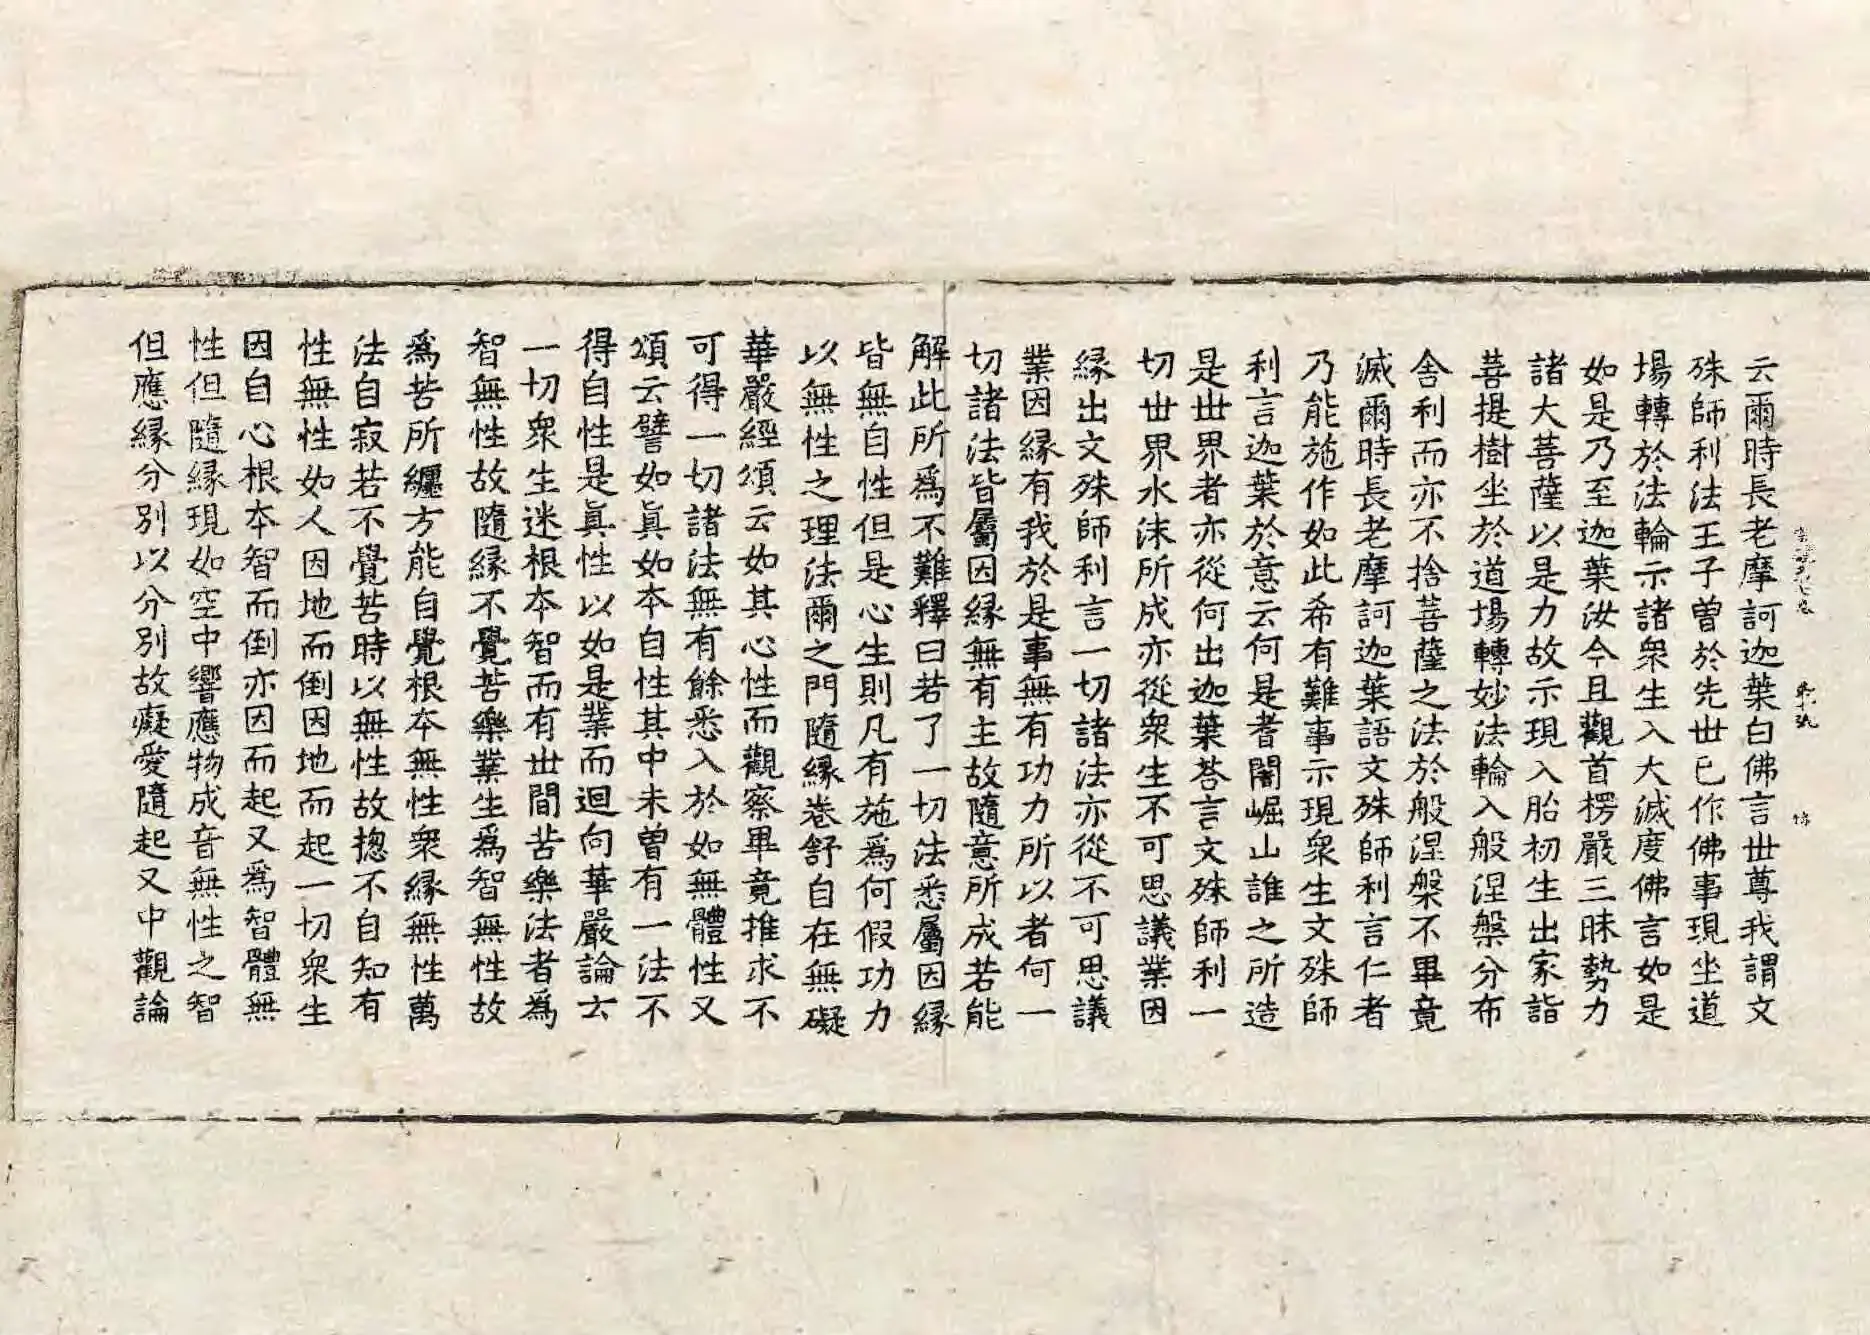 云爾時長老摩訶迦葉白佛言世尊我謂文
殊師利法王子曽於先世已作佛事現坐道
場轉於法輪示諸衆生入大滅度佛言如是
如是乃至迦葉汝今且觀首楞嚴三昧勢力
諸大菩薩以是力故示現入胎初生出家詣
菩提樹坐於道場轉妙法輪入般涅槃分布
舍利而亦不捨菩薩之法於般涅槃不畢竟
滅爾時長老摩訶迦葉語文殊師利言仁者
乃能施作如此希有難事示現衆生文殊師
利言迦葉於意云何是耆闍崛山誰之所造
是世界者亦從何出迦葉荅言文殊師利一
切世界水沫所成亦從衆生不可思議業因
緣出文殊師利言一切諸法亦從不可思議
業因緣有我於是事無有功力所以者何一
切諸法皆屬因緣無有主故隨意所成若能
解此所爲不難釋曰若了一切法悉屬因緣
皆無自性但是心生則凡有施爲何假功力
以無性之理法爾之門隨緣卷舒自在無礙
華嚴經頌云如其心性而觀察畢竟推求不
可得一切諸法無有餘悉入於如無體性又
頌云譬如真如本自性其中未曽有一法不
得自性是真性以如是業而迴向華嚴論云
一切衆生迷根本智而有世間苦樂法者為
智無性故隨緣不覺苦樂業生爲智無性故
爲苦所纏方能自覺根本無性衆緣無性萬
法自寂若不覺苦時以無性故揔不自知有
性無性如人因地而倒因地而起一切衆生
因自心根本智而倒亦因而起又爲智體無
性但隨緣現如空中響應物成音無性之智
但應緣分別以分別故癡愛隨起又中觀論